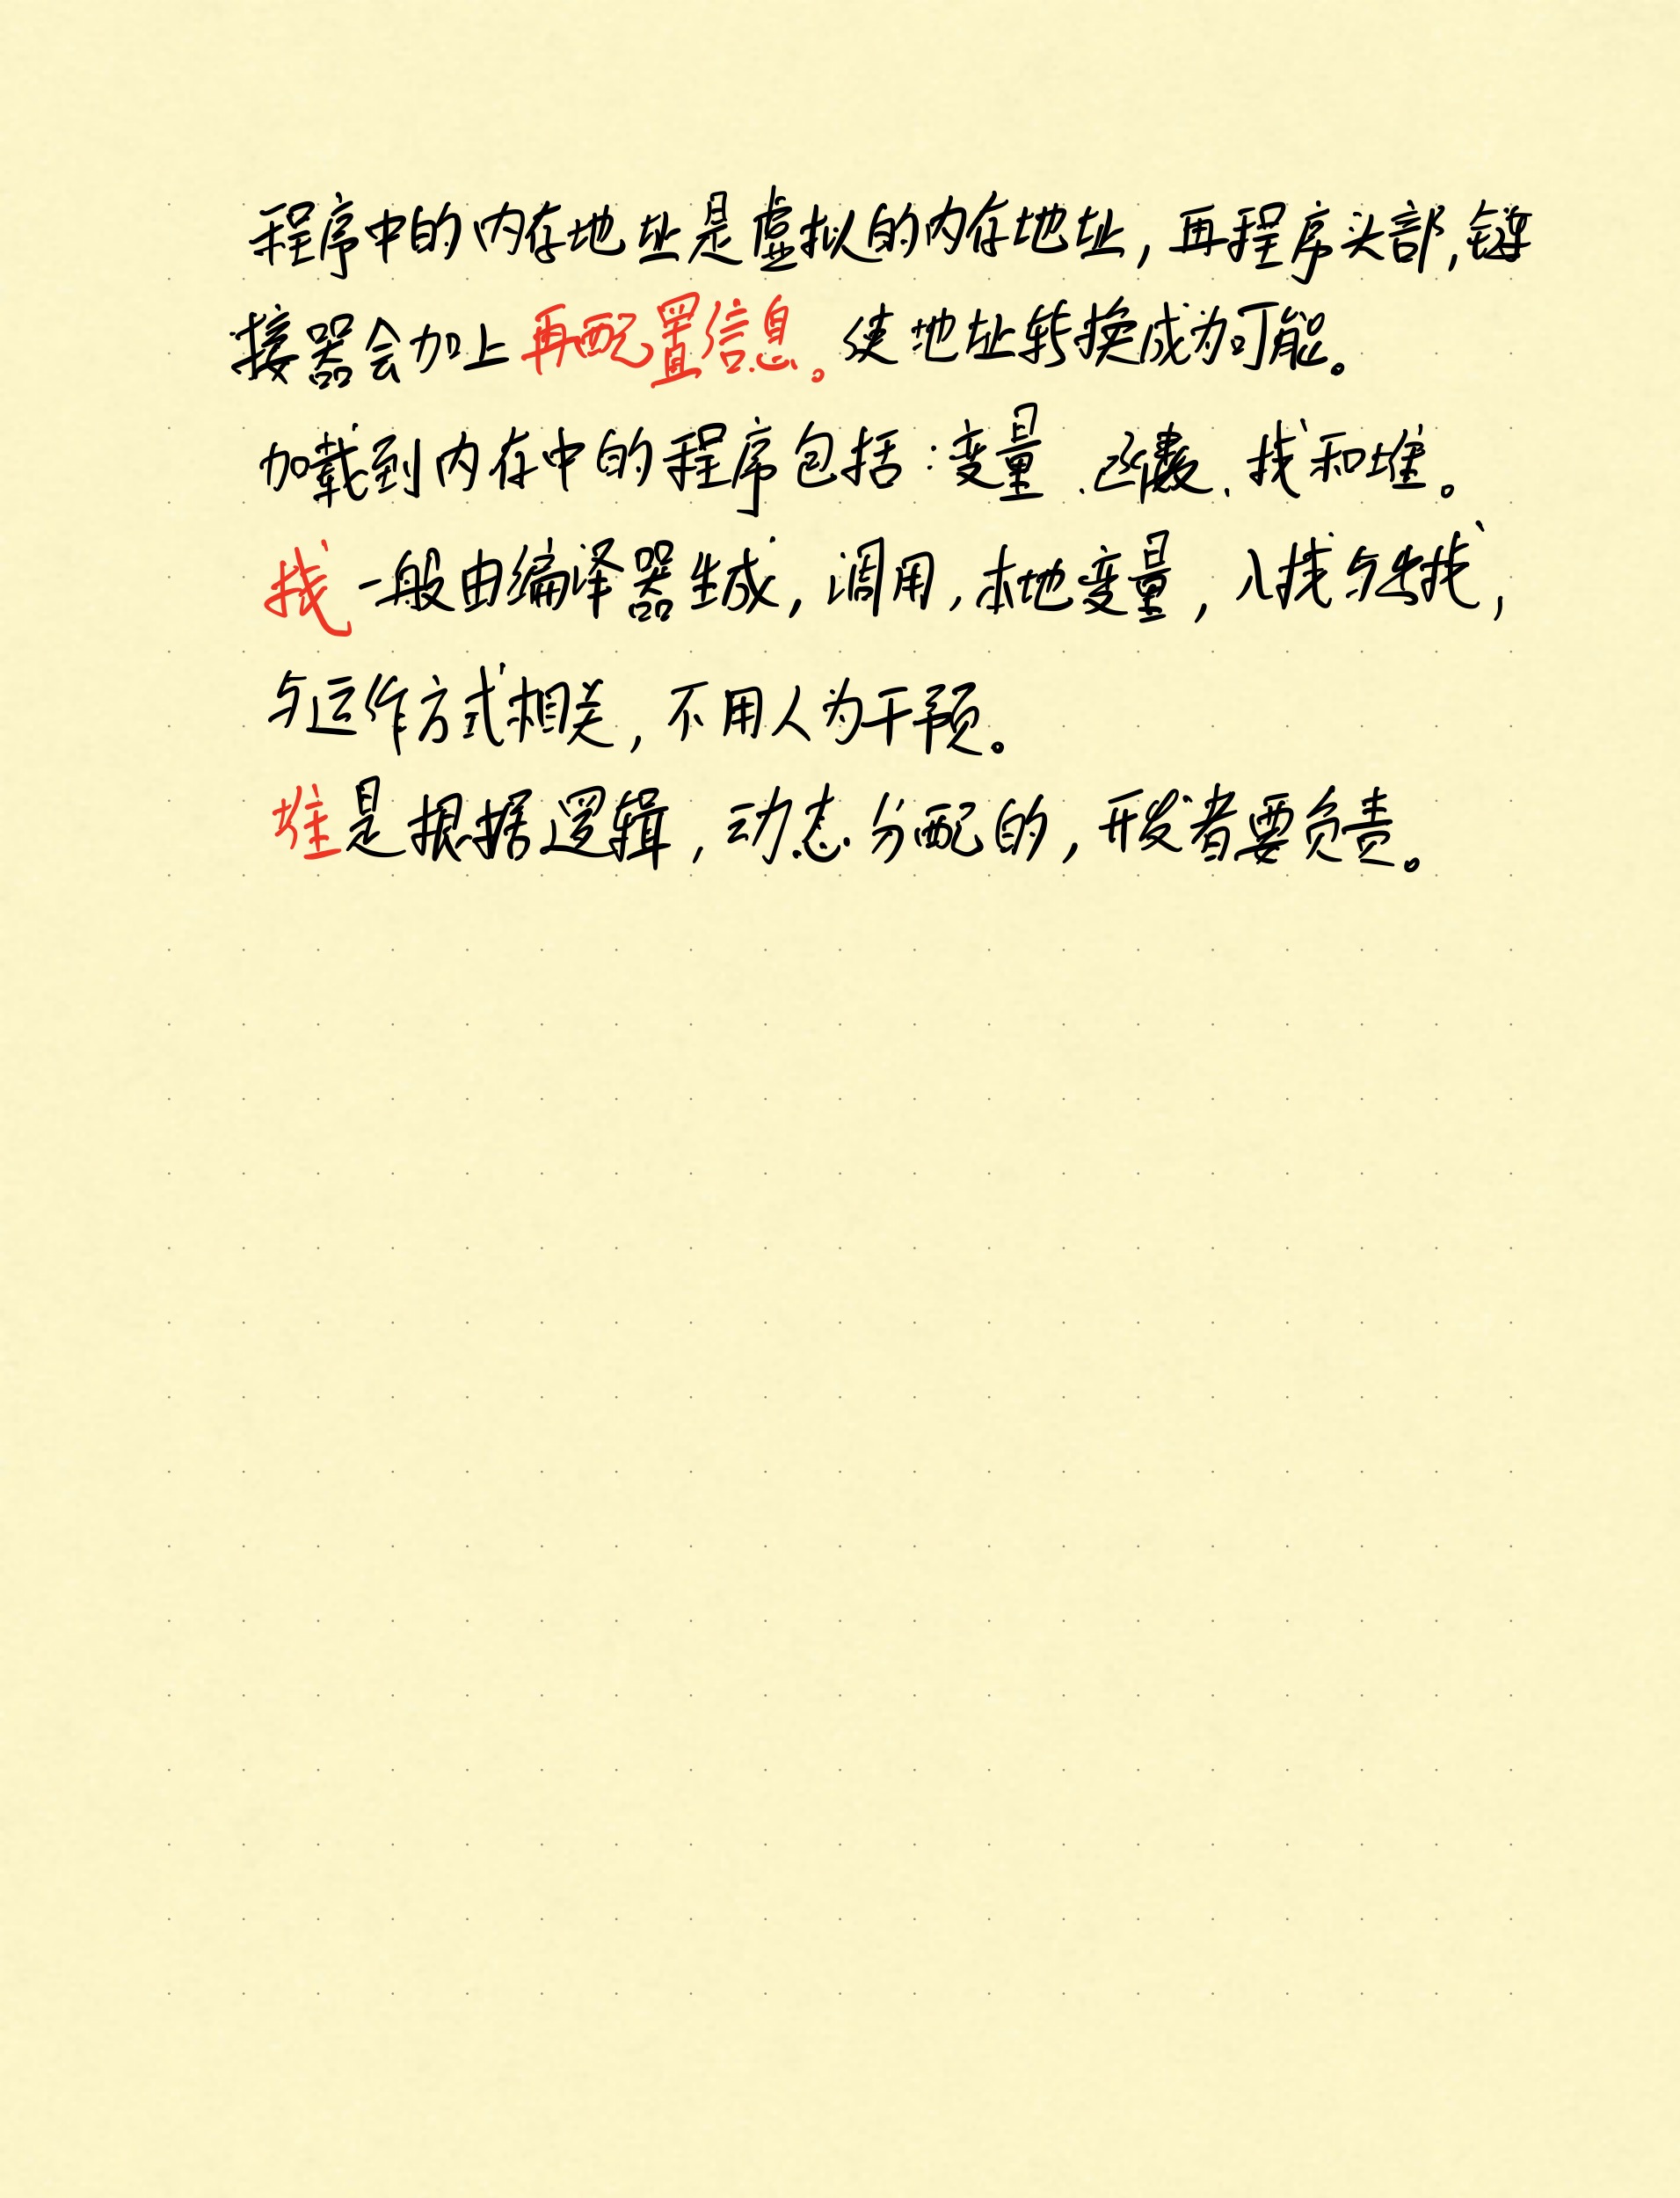 程序中的内存地址是虚拟的内存地址,再程序头部,链
接器会加上再配置信息。使地址转换成为可能。
加载到内存中的程序包括:变量、函数、栈和堆。
栈一般由编译器生成,调用,本地变量,入栈与出栈,
与运作方式相关,不用人为干预。
堆是根据逻辑,动态分配的,开发者要负责。